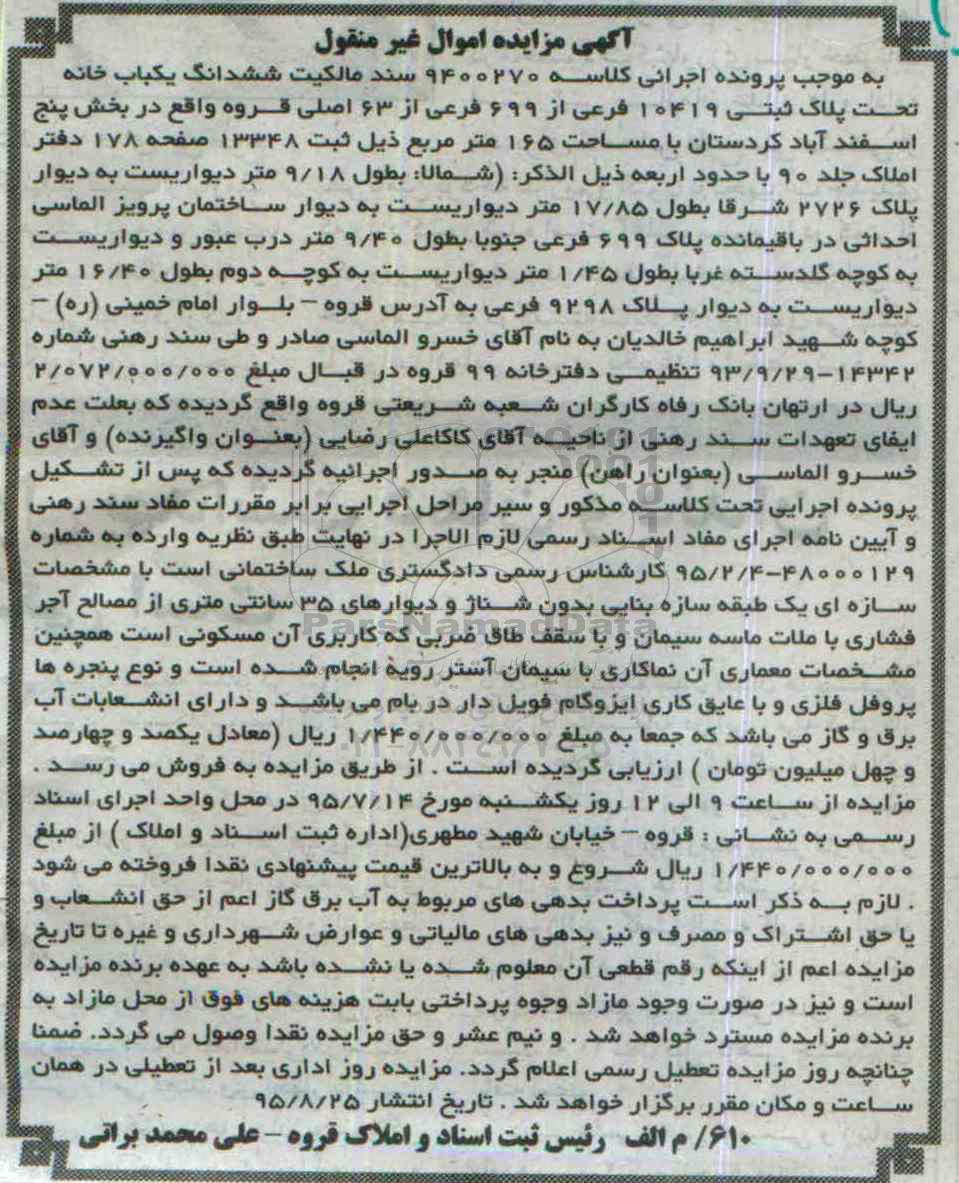 آگهی مزایده اموال غیر منقول
به موجب پرونده اجرائی کلاسه ۹۴۰۰۲۷۰ سند مالکیت ششدانگ یکباب خانه
تحت پلاک ثبتی ۱۰۴۱۹ فرعی از ۶۹۹ فرعی از ۶۳ اصلی قروه واقع در بخش پنج
اسفند آباد کردستان با مساحت ۱۶۵ متر مربع ذیل ثبت ۱۳۳۴۸ صفحه ۱۷۸ دفتر
املاک جلد ۹۰ با حدود اربعه ذیل الذکر: (شمالا: بطول ۹/۱۸ متر دیواریست به دیوار
پلاک ۲۷۲۶ شرقا بطول ۱۷/۸۵ متر دیواریست به دیوار ساختمان پرویز الماسی
احداثی در باقیمانده پلاک ۶۹۹ فرعی جنوبا بطول ۹/۴۰ متر درب عبور و دیواریست
به کوچه گلدسته غربا بطول ۱/۴۵ متر دیواریست به کوچه دوم بطول ۱۶/۴۰ متر
دیواریست به دیوار پلاک ۹۲۹۸ فرعی به آدرس قروه – بلوار امام خمینی (ره) –
کوچه شهید ابراهیم خالدیان به نام آقای خسرو الماسی صادر و طی سند رهنی شماره
۱۴۳۴۲-۹۳/۹/۲۹ تنظیمی دفترخانه ۹۹ قروه در قبال مبلغ ۲/۰۷۲/۰۰۰/۰۰۰
ریال در ارتهان بانک رفاه کارگران شعبه شریعتی قروه واقع گردیده که بعلت عدم
ایفای تعهدات سند رهنی از ناحیه آقای کاکاعلی رضایی (بعنوان واگیرنده) و آقای
خسرو الماسی (بعنوان راهن) منجر به صدور اجرائیه گردیده که پس از تشکیل
پرونده اجرایی تحت کلاسه مذکور و سیر مراحل اجرایی برابر مقررات مفاد سند رهنی
و آیین نامه اجرای مفاد اسناد رسمی لازم الاجرا در نهایت طبق نظریه وارده به شماره
۴۸۰۰۰۱۲۹-۹۵/۲/۴ کارشناس رسمی دادگستری ملک ساختمانی است با مشخصات
سازه ای یک طبقه سازه بنایی بدون شناژ و دیوارهای ۳۵ سانتی متری از مصالح آجر
فشاری با ملات ماسه سیمان و با سقف طاق ضربی که کاربری آن مسکونی است همچنین
مشخصات معماری آن نماکاری با سیمان آستر رویه انجام شده است و نوع پنجره ها
پروفل فلزی و با عایق کاری ایزوگام فویل دار در بام می باشد و دارای انشعابات آب
برق و گاز می باشد که جمعا به مبلغ ۱/۴۴۰/۰۰۰/۰۰۰ ریال (معادل یکصد و چهارصد
و چهل میلیون تومان ) ارزیابی گردیده است . از طریق مزایده به فروش می رسد .
مزایده از ساعت ۹ الی ۱۲ روز یکشنبه مورخ ۹۵/۷/۱۴ در محل واحد اجرای اسناد
رسمی به نشانی : قروه – خیابان شهید مطهری(اداره ثبت اسناد و املاک ) از مبلغ
۱/۴۴۰/۰۰۰/۰۰۰ ریال شروع و به بالاترین قیمت پیشنهادی نقدا فروخته می شود
. لازم به ذکر است پرداخت بدهی های مربوط به آب برق گاز اعم از حق انشعاب و
یا حق اشتراک و مصرف و نیز بدهی های مالیاتی و عوارض شهرداری و غیره تا تاریخ
مزایده اعم از اینکه رقم قطعی آن معلوم شده یا نشده باشد به عهده برنده مزایده
است و نیز در صورت وجود مازاد وجوه پرداختی بابت هزینه های فوق از محل مازاد به
برنده مزایده مسترد خواهد شد . و نیم عشر و حق مزایده نقدا وصول می گردد. ضمنا
چنانچه روز مزایده تعطیل رسمی اعلام گردد. مزایده روز اداری بعد از تعطیلی در همان
ساعت و مکان مقرر برگزار خواهد شد . تاریخ انتشار ۹۵/۸/۲۵
۶۱۰/ م الف رئیس ثبت اسناد و املاک قروه – علی محمد براتی
ParsNamadData